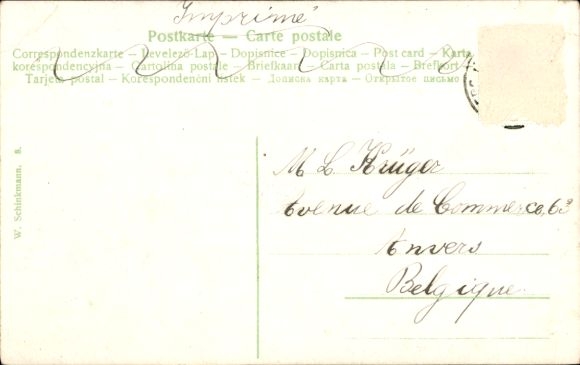 Imprimé
Postkarte — Carte postale
Correspondenzkarte – Levelező-Lap – Dopisnice – Dopisnica – Post card – Karta
korespondencyjna – Cartolina postale – Briefkaart – Carta postala – Brefkort –
Tarjeta postal – Korespondenční lístek – Дописна карта – Открытое письмо
W. Schinkmann. 8.
M L Krüger
Avenue de Commerce, 63
Anvers
Belgique